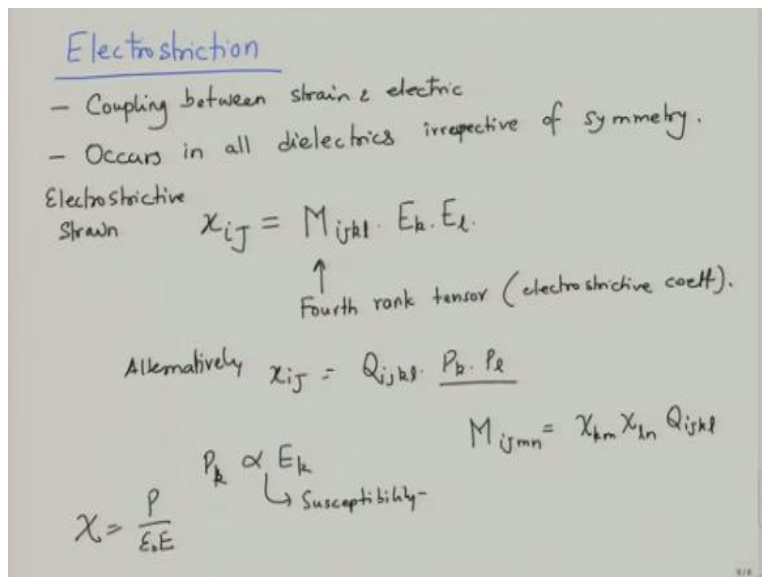 Electrostriction
- Coupling between strain & electric
- Occurs in all dielectrics irrepective of symmetry.
Electrostrictive
Strain
x_ij = M_ijkl . E_k . E_l .
↑
Fourth rank tensor (electrostrictive coeff).
Alternatively x_ij = Q_ijkl . P_k . P_l
M_ijmn = χ_km χ_ln Q_ijkl
P_k ∝ E_k
↳ Susceptibility -
χ = P / ε₀E